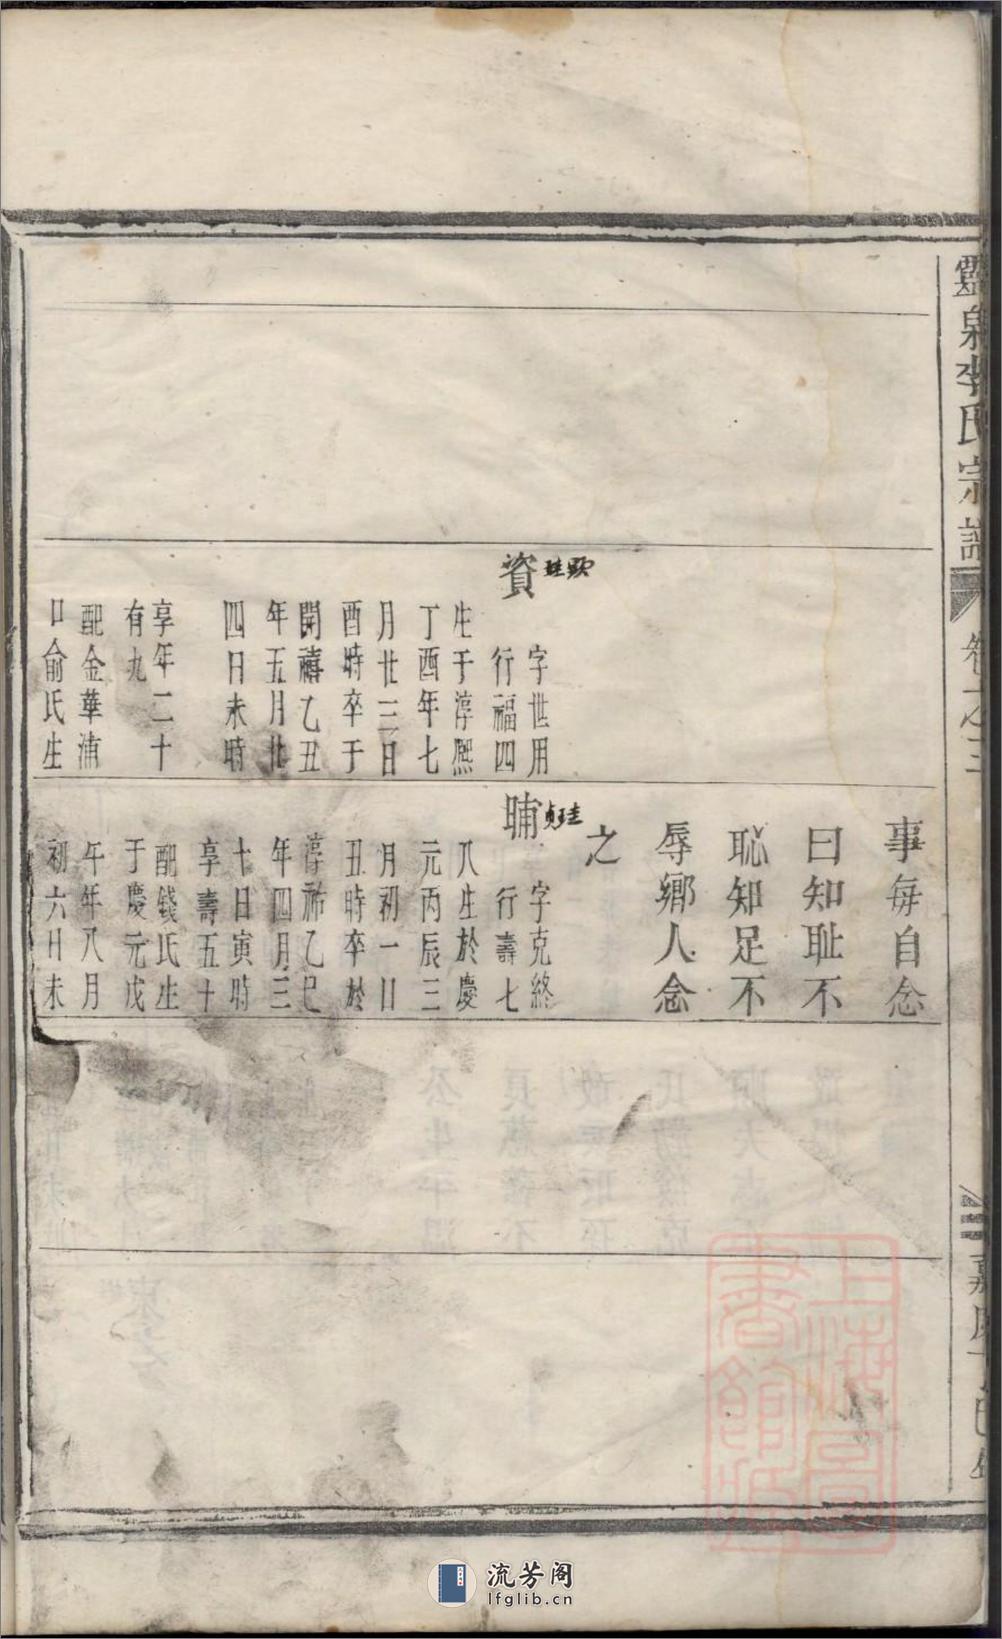 靈泉李氏宗譜
卷之三
嘉慶丁巳年
資
顯珪
字世用
行福四
生于淳熙
丁酉年七
月廿三日
酉時卒于
開禧乙丑
年五月廿
四日未時
享年二十
有九
配金華浦
口俞氏生
事每自念
曰知耻不
恥知足不
辱鄉人念
之
晡
珪貞
字克終
行壽七
八生於慶
元丙辰三
月初一日
丑時卒於
淳祐乙巳
年四月三
十日寅時
享壽五十
配錢氏生
于慶元戊
午年八月
初六日未
上海圖書館藏
流芳阁
lfglib.cn